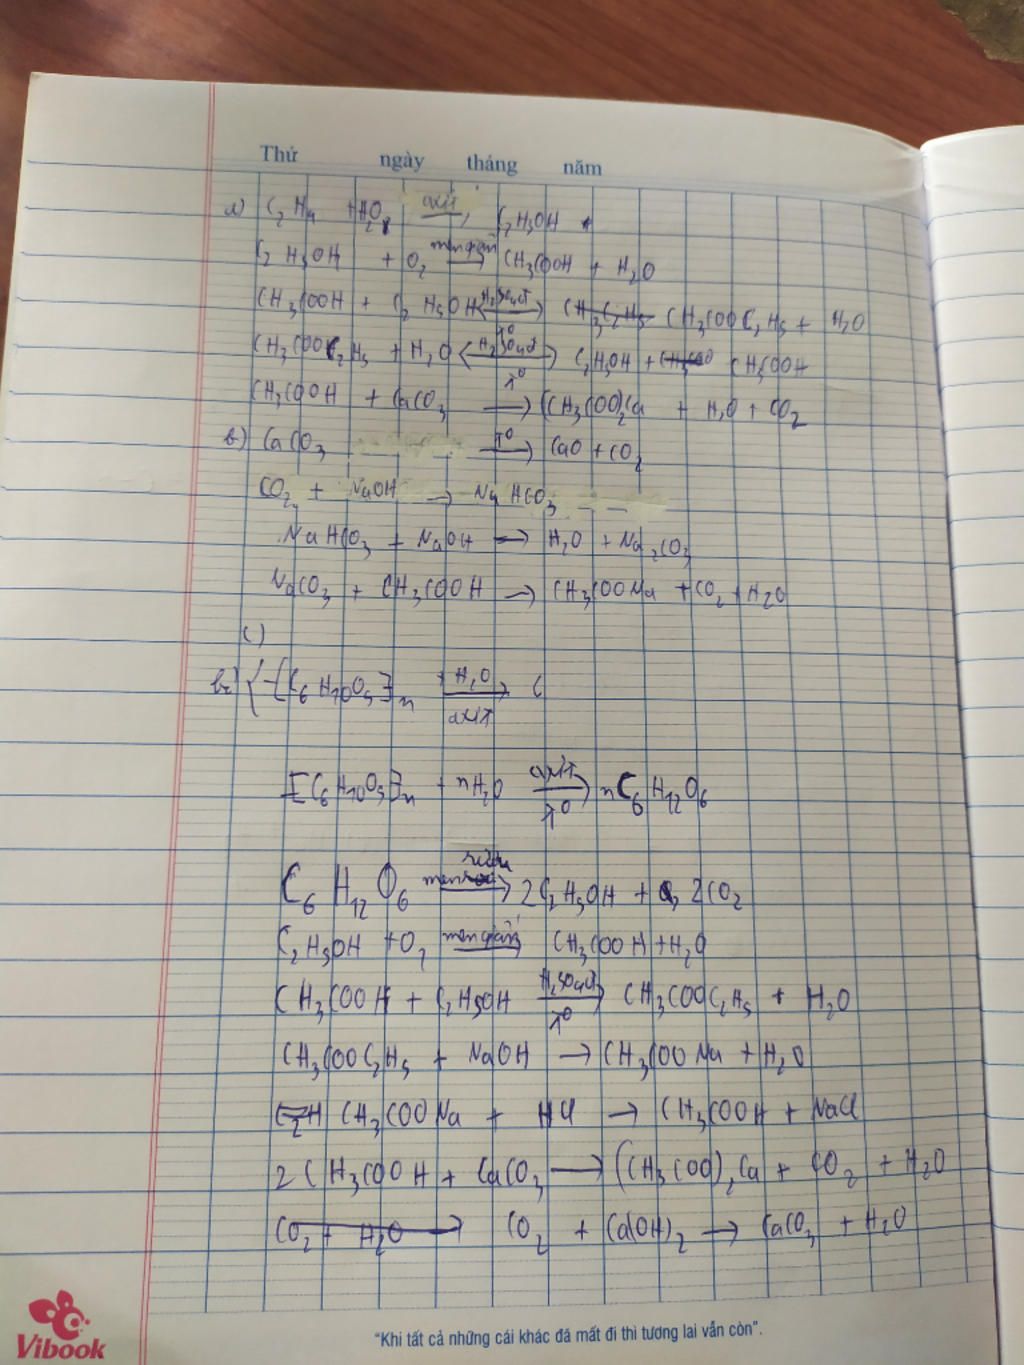 Thứ ngày tháng năm
a) C₂H₄ + H₂O axit → C₂H₅OH
C₂H₅OH + O₂ men giấm → CH₃COOH + H₂O
CH₃COOH + C₂H₅OH ⇄ H₂SO₄đ t⁰ CH₃COOC₂H₅ + H₂O
CH₃COOC₂H₅ + H₂O ⇄ H₂SO₄đ t⁰ C₂H₅OH + CH₃COOH
CH₃COOH + CaCO₃ → (CH₃COO)₂Ca + H₂O + CO₂
b) CaCO₃ t⁰ → CaO + CO₂
CO₂ + NaOH → NaHCO₃
NaHCO₃ + NaOH → H₂O + Na₂CO₃
NaCO₃ + CH₃COOH → CH₃COONa + CO₂ + H₂O
c)
[C₆H₁₀O₅]n + H₂O axit → C
[C₆H₁₀O₅]n + nH₂O axit t⁰ → nC₆H₁₂O₆
C₆H₁₂O₆ men rượu → 2C₂H₅OH + 2CO₂
C₂H₅OH + O₂ men giấm → CH₃COOH + H₂O
CH₃COOH + C₂H₅OH H₂SO₄đ t⁰ → CH₃COOC₂H₅ + H₂O
CH₃COOC₂H₅ + NaOH → CH₃COONa + H₂O
CH₃COONa + HCl → CH₃COOH + NaCl
2CH₃COOH + CaCO₃ → (CH₃COO)₂Ca + CO₂ + H₂O
CO₂ + H₂O → CO₂ + Ca(OH)₂ → CaCO₃ + H₂O
"Khi tất cả những cái khác đã mất đi thì tương lai vẫn còn".
Vibook